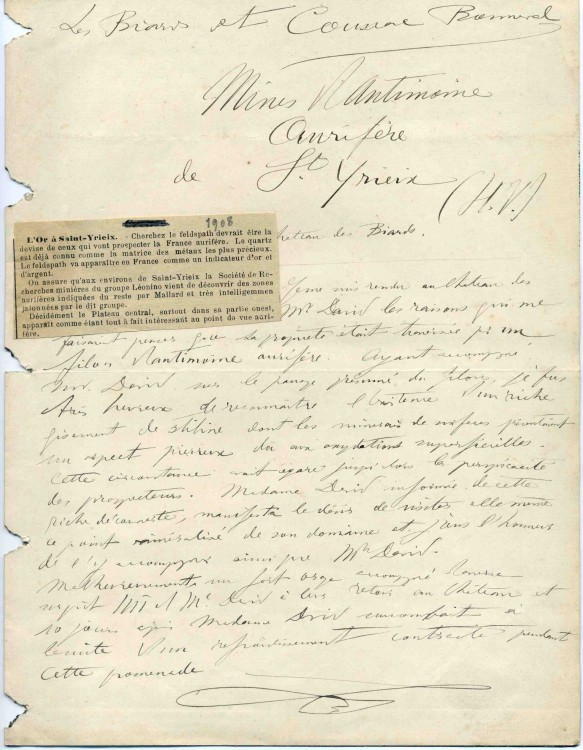 Les Biards et Coussac Bonneval
Mines d'antimoine
Aurifère
de St Yrieix
(H.V.)
1908
L'Or à Saint-Yrieix. - Cherchez le feldspath devrait être la
devise de ceux qui vont prospecter la France aurifère. Le quartz
est déjà connu comme la matrice des métaux les plus précieux.
Le feldspath va apparaître en France comme un indicateur d'or et
d'argent.
On assure qu'aux environs de Saint-Yrieix la Société de Re-
cherches minières du groupe Léonino vient de découvrir des zones
aurifères indiquées du reste par Mallard et très intelligemment
jalonnées par le dit groupe.
Décidément le Plateau central, surtout dans sa partie ouest,
apparaît comme étant tout à fait intéressant au point de vue auri-
fère.
des Biards.
Je me suis rendu au château des
Mr David les raisons qui me
faisaient penser que la propriété était traversée par un
filon d'antimoine aurifère. Ayant accompagné
Mr. David sur le passage présumé du filon, je fus
très heureux de reconnaître l'existence d'un riche
gisement de stibine dont les minerais de surface présentaient
un aspect pierreux dû aux oxydations superficielles.
Cette circonstance avait égaré jusqu'alors la perspicacité
des prospecteurs. Madame David informée de cette
riche découverte, manifesta le désir de visiter elle même
ce point minéralisé de son domaine et j'eus l'honneur
de l'y accompagner ainsi que Mr David.
Malheureusement un fort orage accompagné d'averse
surprit Mr et Me David à leur retour au château et
10 jours après Madame David succombait à
la suite d'un refroidissement contracté pendant
cette promenade